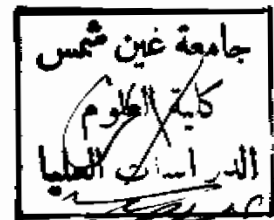 جامعة غين شمس
كلية العلوم
الدراسات العليا